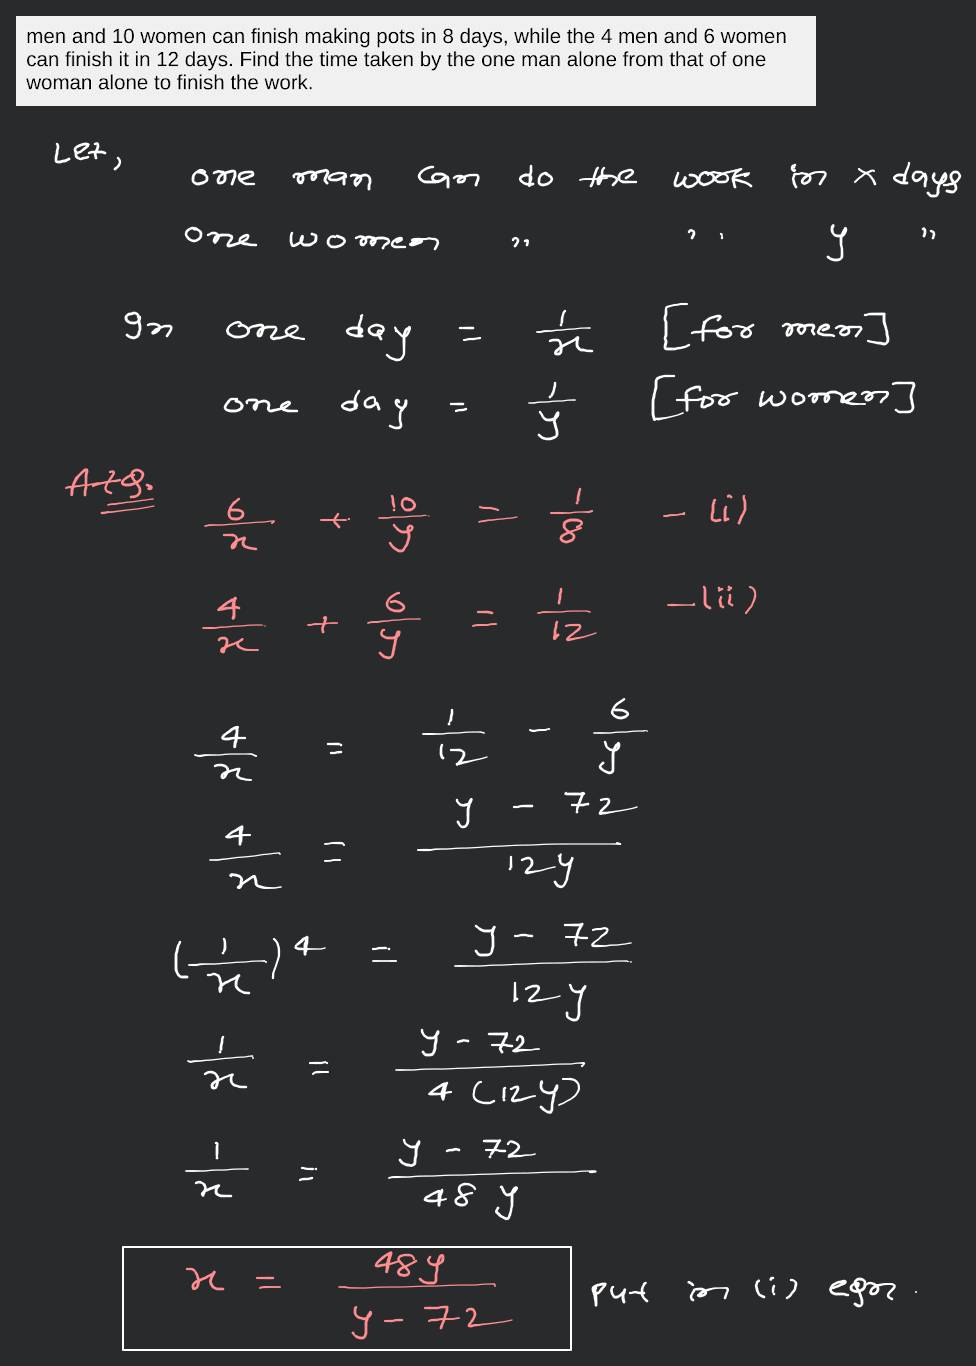 men and 10 women can finish making pots in 8 days, while the 4 men and 6 women
can finish it in 12 days. Find the time taken by the one man alone from that of one
woman alone to finish the work.
Let,
one man can do the work in x days
one women " " y "
In one day = 1/x [for men]
one day = 1/y [for women]
AtQ.
6/x + 10/y = 1/8 - (i)
4/x + 6/y = 1/12 - (ii)
4/x = 1/12 - 6/y
4/x = y - 72 / 12y
(1/x) 4 = y - 72 / 12y
1/x = y - 72 / 4 (12y)
1/x = y - 72 / 48 y
x = 48y / y - 72 put in (i) eqn.